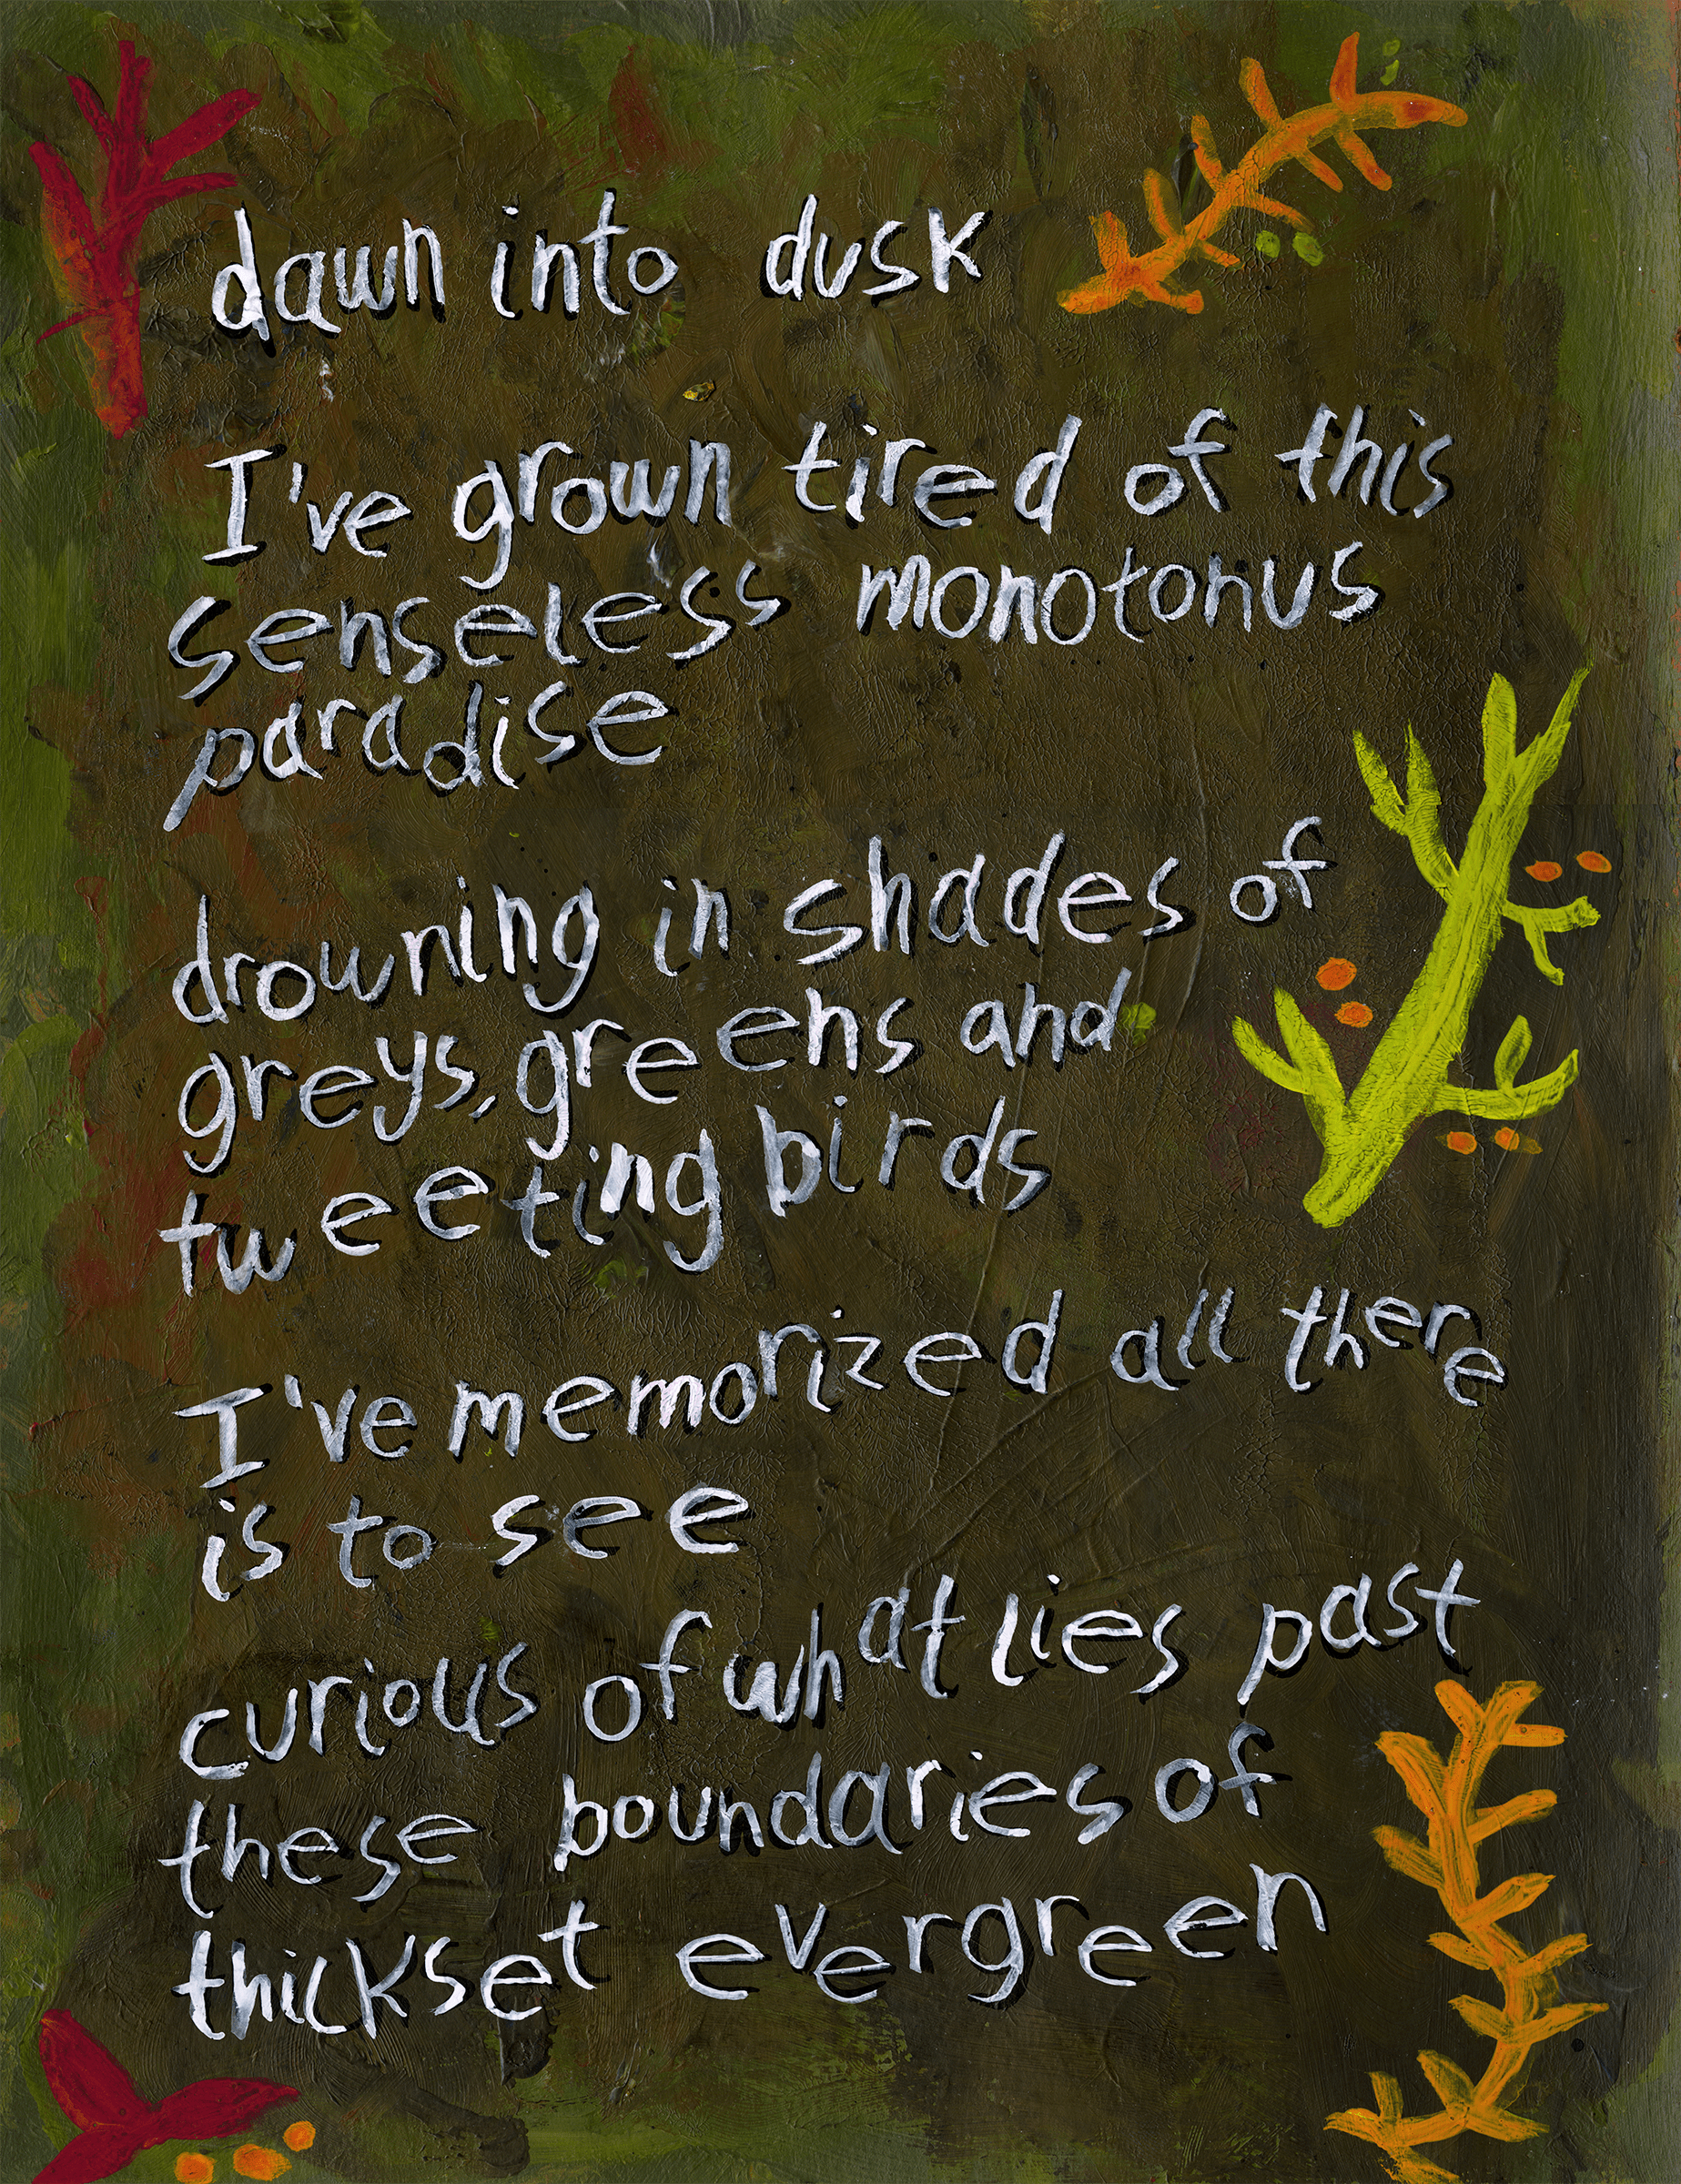 dawn into dusk
I've grown tired of this
senseless monotonus
paradise
drowning in shades of
greys, greens and
tweeting birds
I've memorized all there
is to see
curious of what lies past
these boundaries of
thickset evergreen